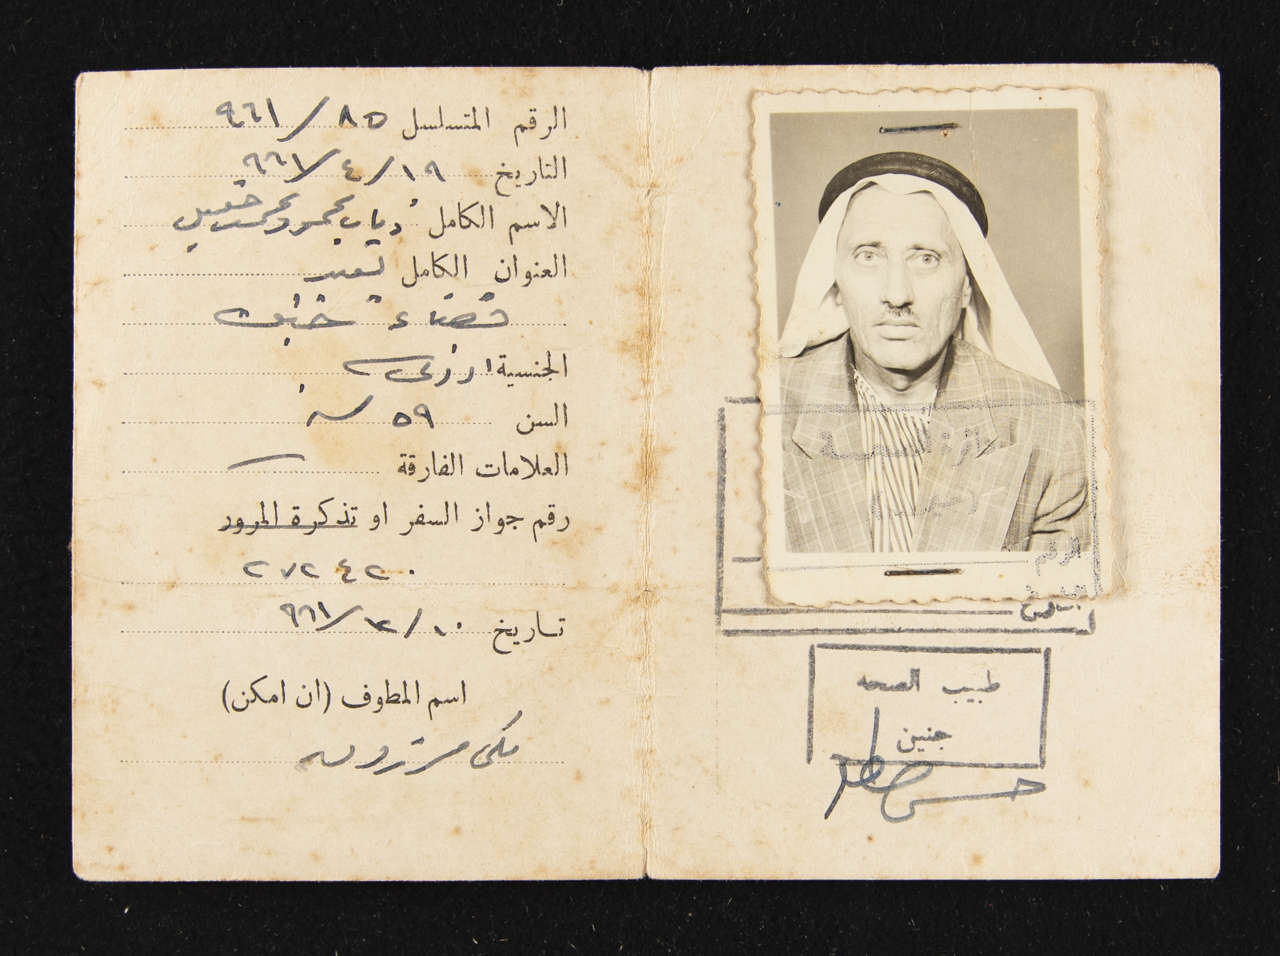 الرقم المتسلسل ٨٥/٩٦١
التاريخ ١٩/٤/٩٦١
الاسم الكامل ذياب محمود محمد
العنوان الكامل تعنك
قضاء جنين
الجنسية اردني
السن ٥٩ سنه
العلامات الفارقة
رقم جواز السفر او تذكرة المرور
٢٧٢٤٢٠
تاريخ ١٠/٣/٩٦١
اسم المطوف (ان امكن)
مكي
الرقم
طبيب الصحه
جنين